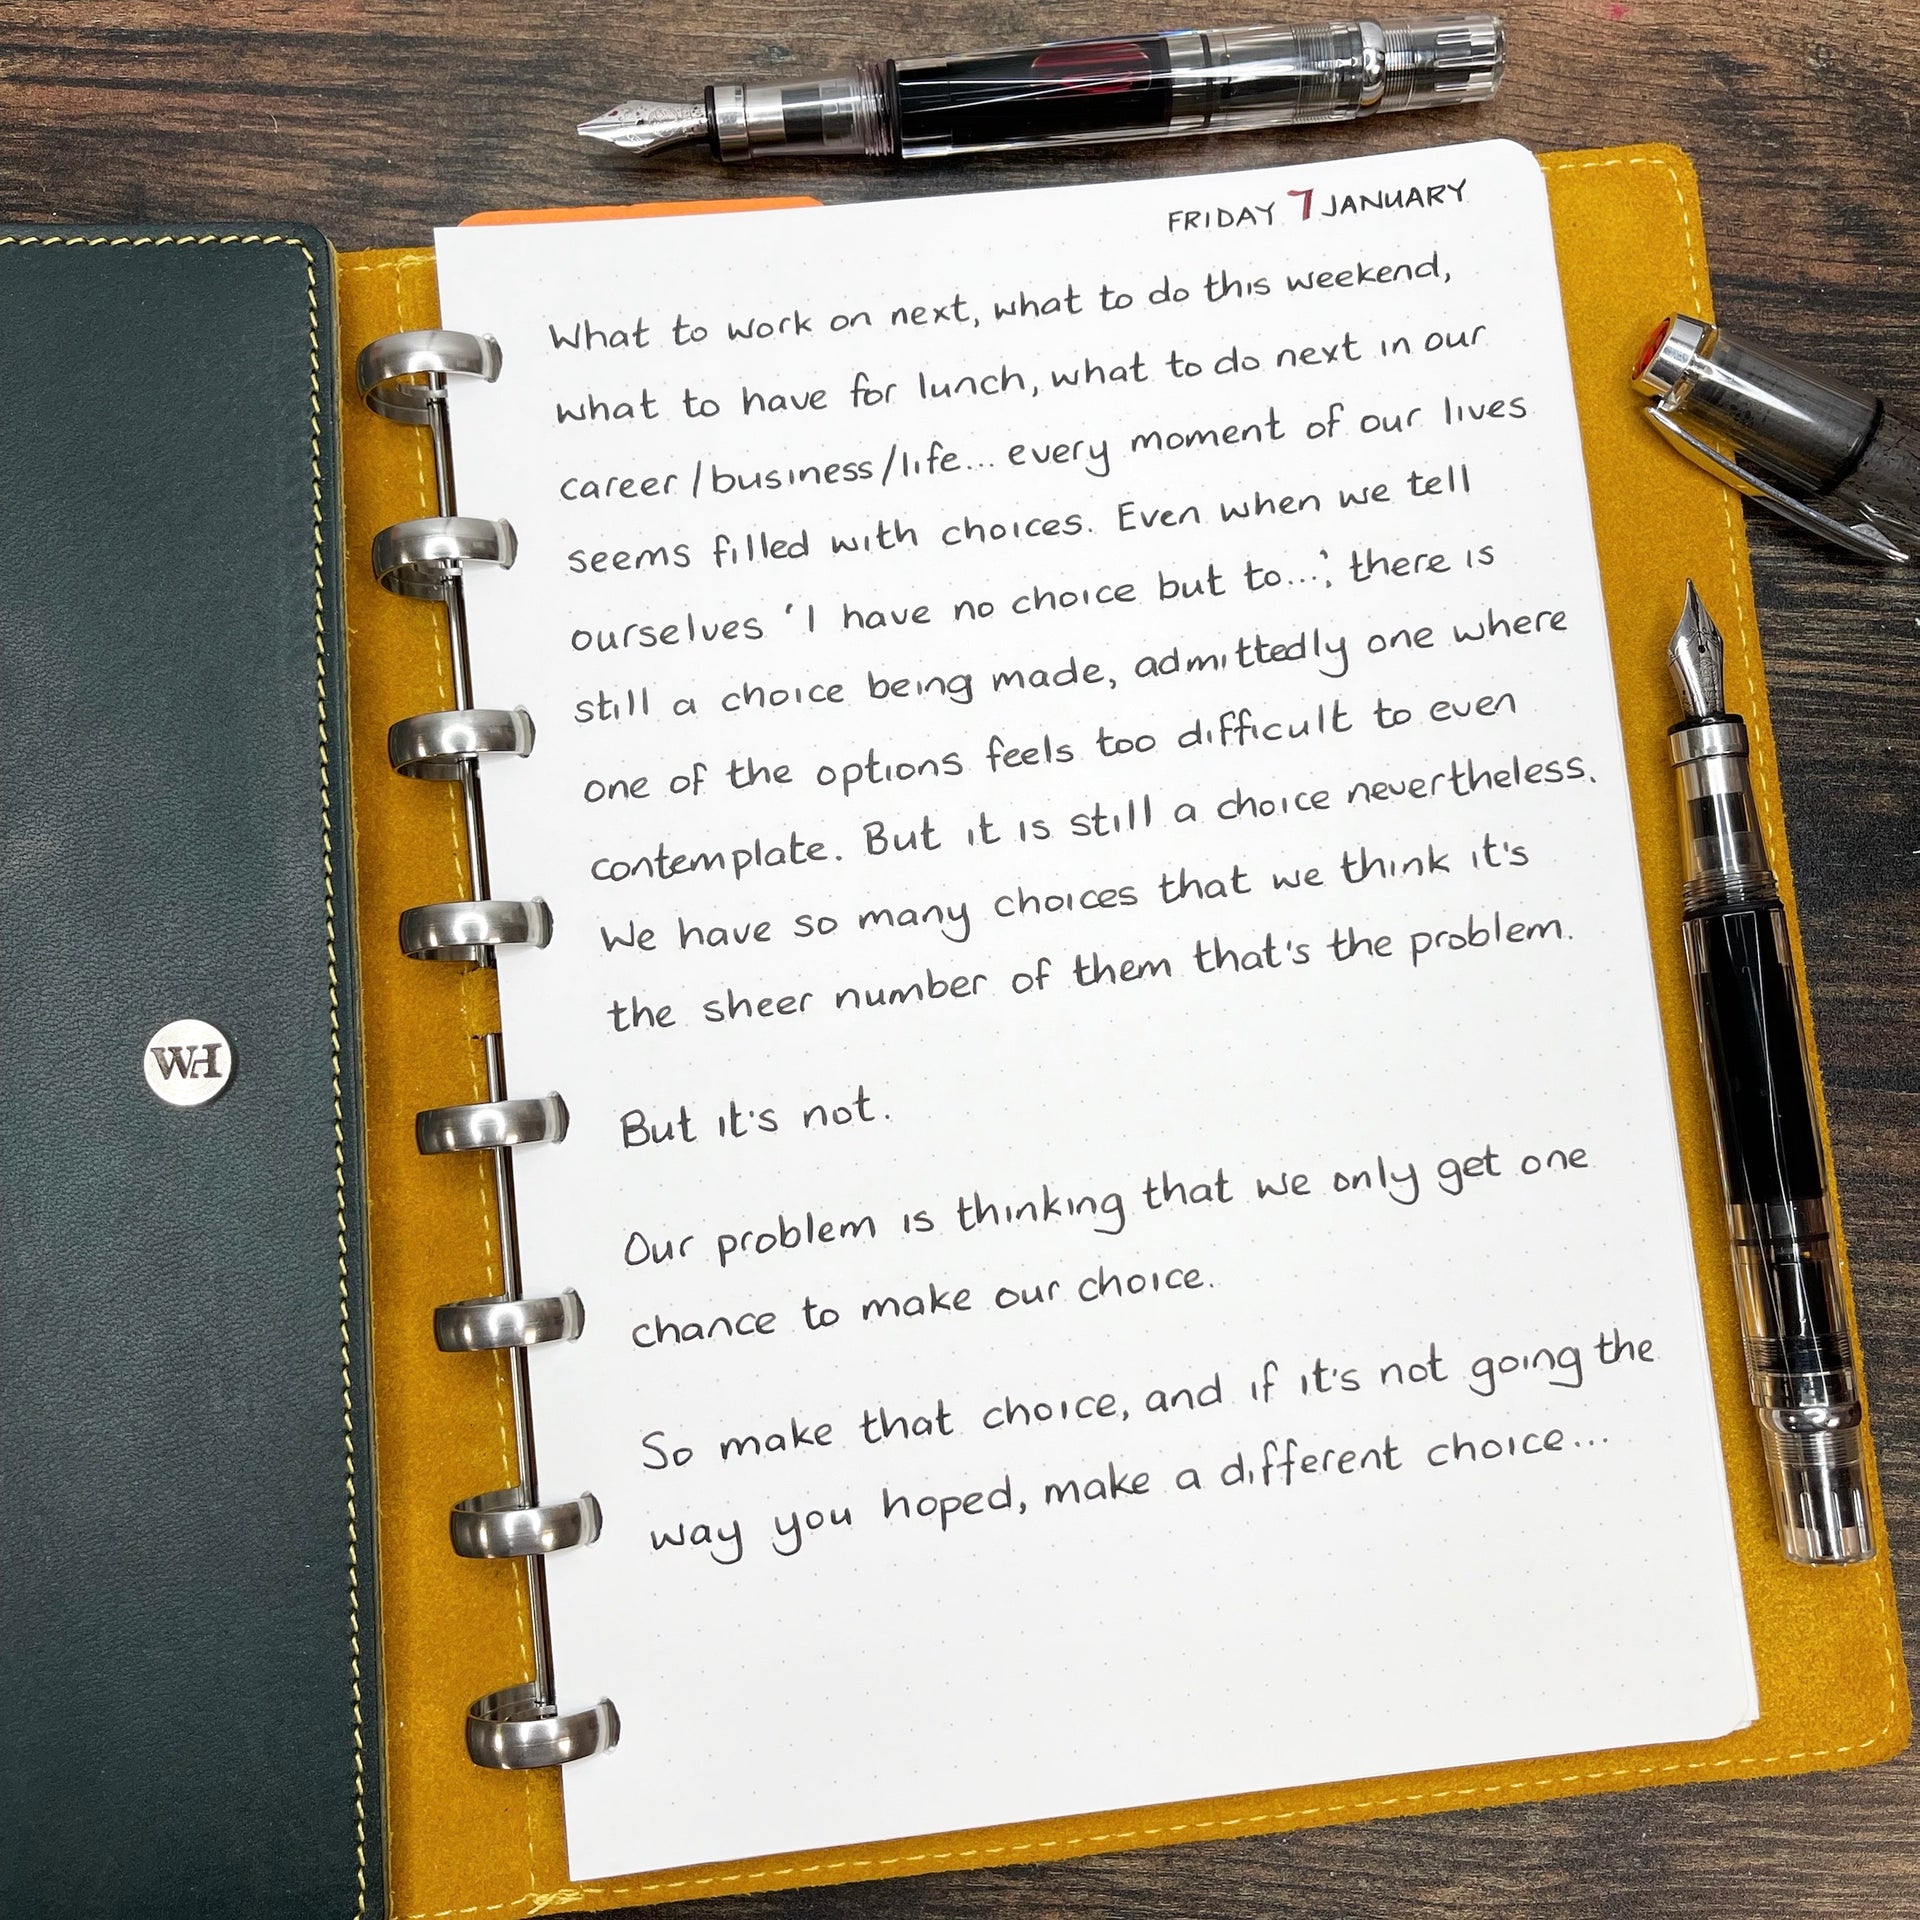 FRIDAY 7 JANUARY
What to work on next, what to do this weekend,
what to have for lunch, what to do next in our
career/business/life... every moment of our lives
seems filled with choices. Even when we tell
ourselves 'I have no choice but to...', there is
still a choice being made, admittedly one where
one of the options feels too difficult to even
contemplate. But it is still a choice nevertheless.
We have so many choices that we think it's
the sheer number of them that's the problem.
But it's not.
Our problem is thinking that we only get one
chance to make our choice.
So make that choice, and if it's not going the
way you hoped, make a different choice...
WH